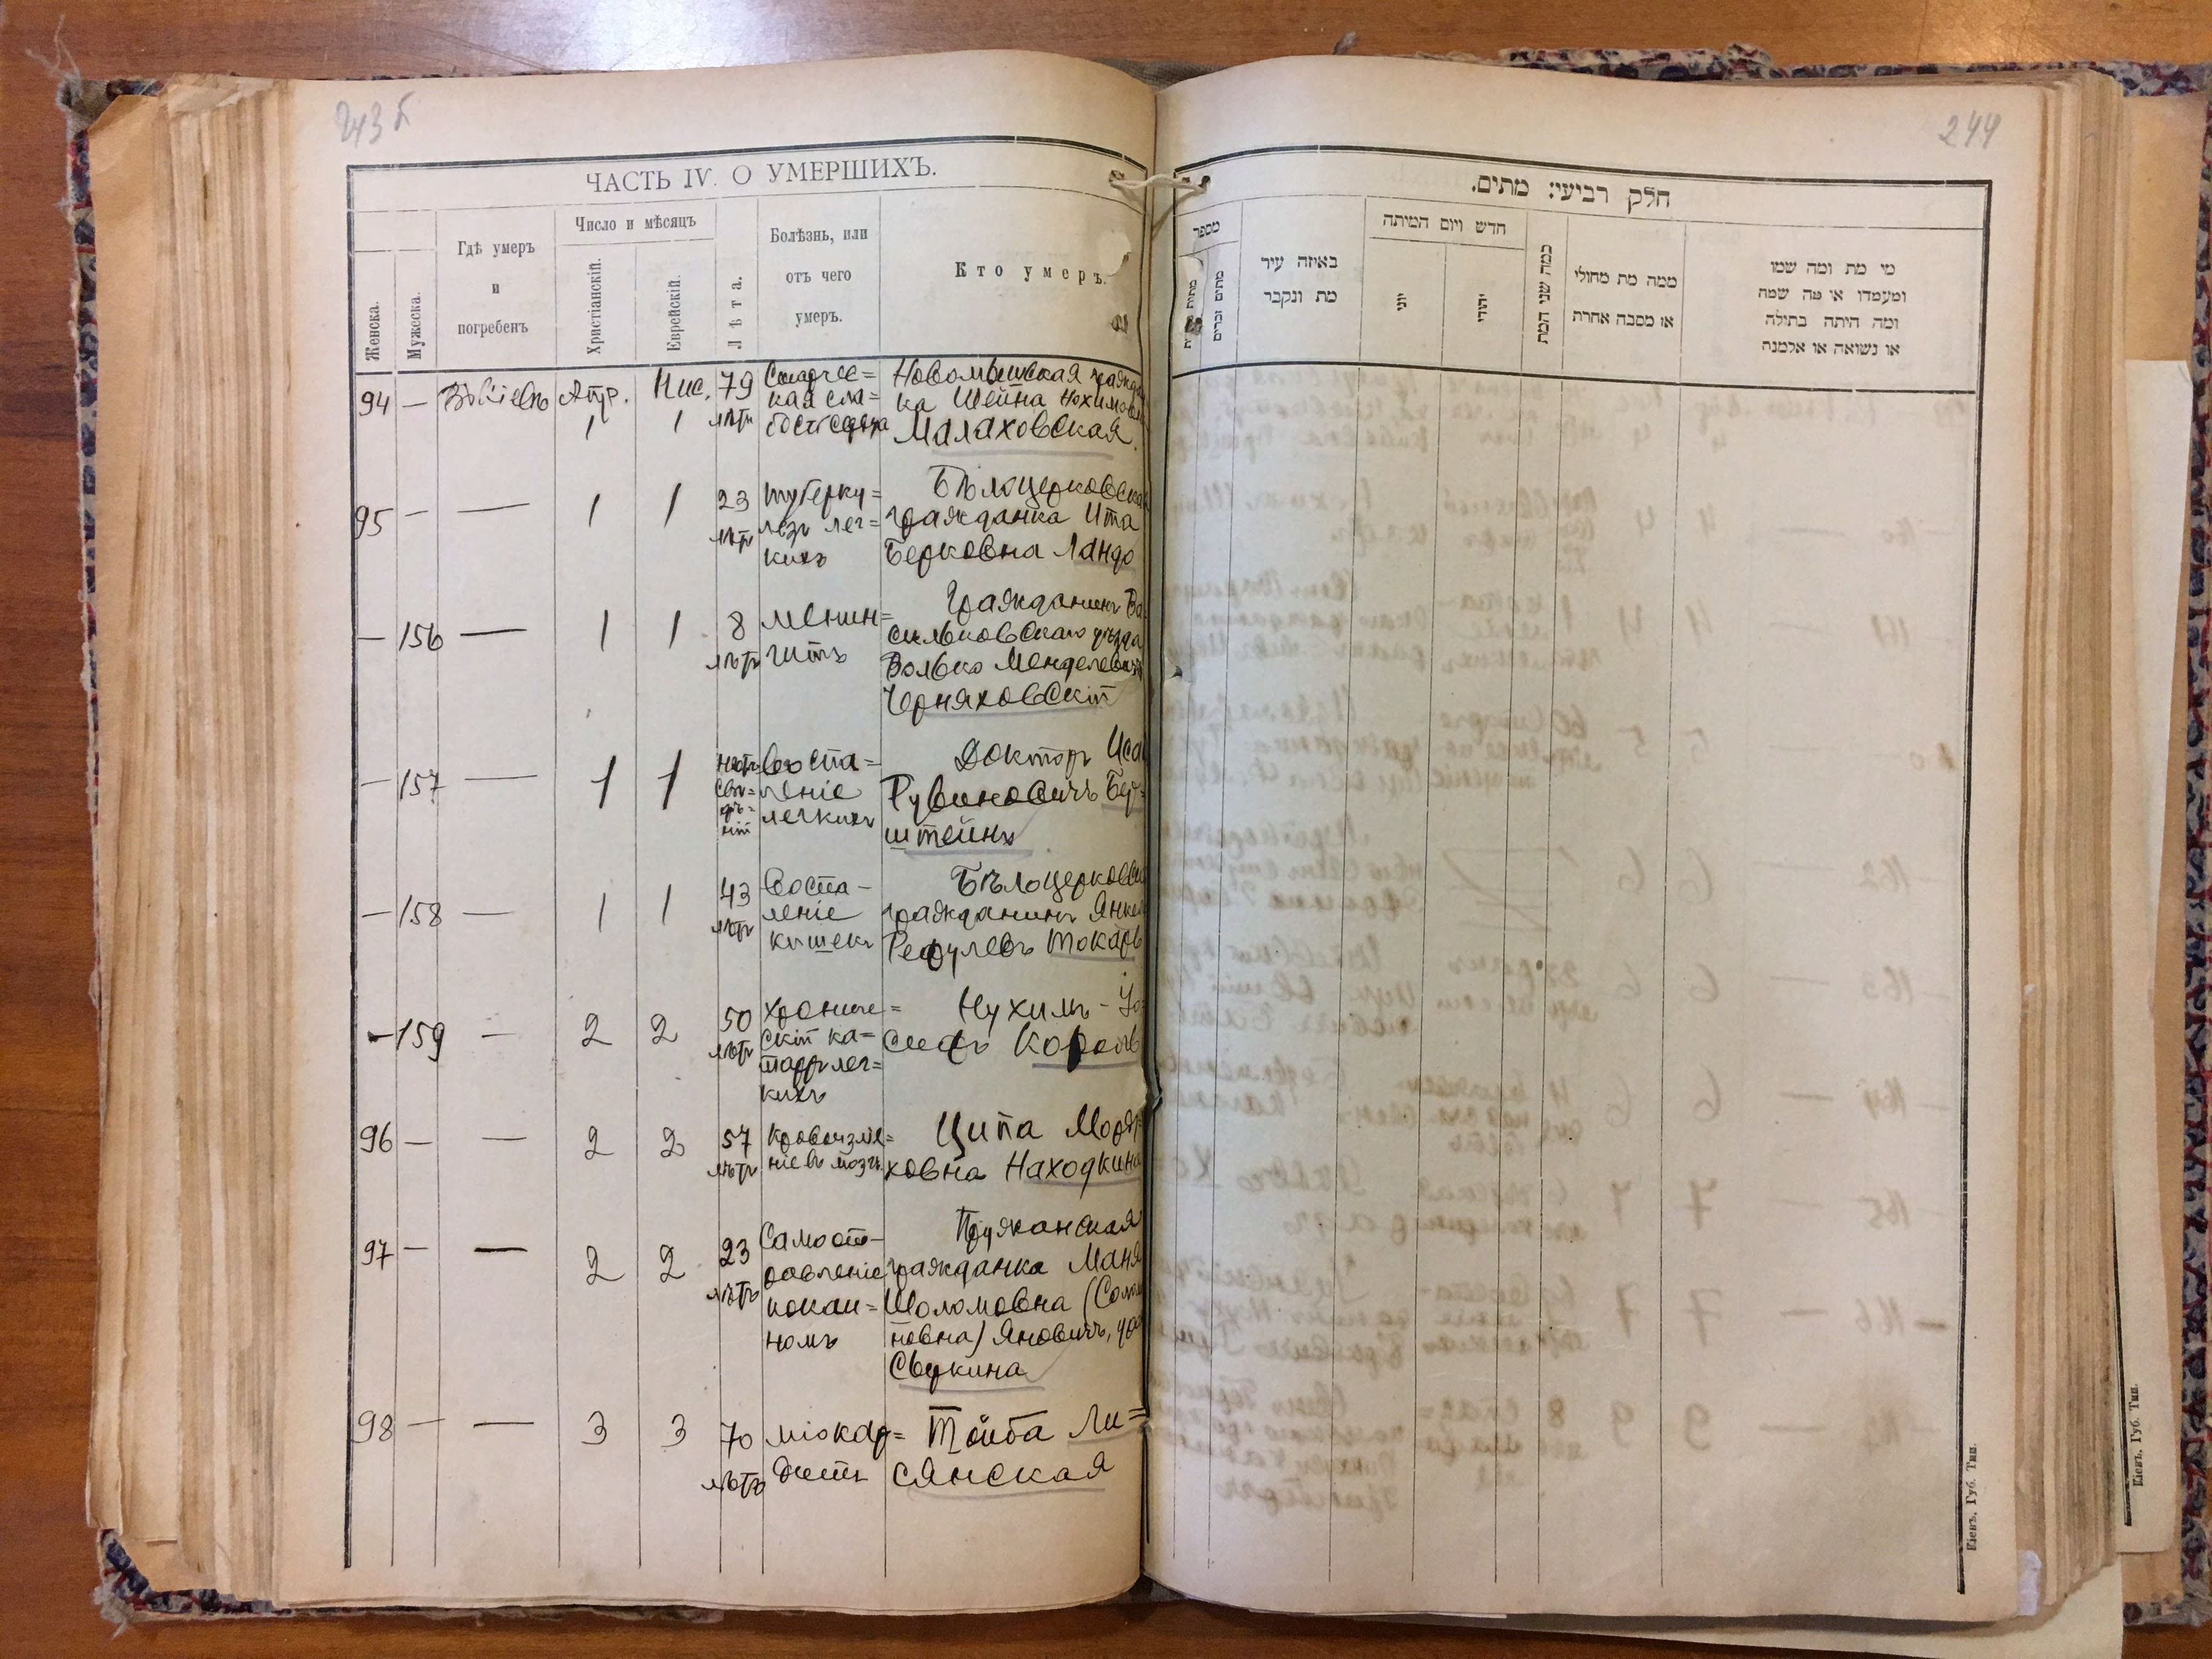 243 б
ЧАСТЬ IV. О УМЕРШИХЪ.
Женска.
Мужеска.
Гдѣ умеръ
и
погребенъ
Число и мѣсяцъ
Христіанскій.
Еврейскій.
Лѣта.
Болѣзнь, или
отъ чего
умеръ.
Кто умеръ.
94 — Въ Кіевѣ Апр. 1 Нис. 1 79 лѣтъ
Старчес=
кая сла=
бость сердца
Новомышская гражда
ка Шейна Нохимовн
Малаховская
95 — — 1 1 23 лѣтъ
туберку=
лезъ лег=
кихъ
Бѣлоцерковска
гражданка Ита
Берковна Ландо
— 156 — 1 1 8 лѣтъ
менин=
гитъ
Гражданинъ Ва
сильковскаго уѣзда
Волько Менделевичъ
Черняховскій
— 157 — 1 1 нѣтъ свѣ=дѣ=ній
воспа=
леніе
легкихъ
Докторъ Иса
Рувиновичъ Бер=
штейнъ
— 158 — 1 1 43 лѣтъ
воспа—
леніе
кишекъ
Бѣлоцерковск
гражданинъ Янкел
Рефулевъ Токарь
— 159 — 2 2 50 лѣтъ
хрониче=
скій ка=
тарръ лег=
кихъ
Нухимъ-Іо
сифъ Король
96 — — 2 2 57 лѣтъ
кровоизлія=
ніе въ мозгъ
Ципа Мордк
ховна Находкина
97 — — 2 2 23 лѣтъ
Самоот—
равленіе
кокаи=
номъ
Пружанская
гражданка Маня
Шоломовна (Соло
новна) Яновичъ, ур
Свуркина
98 — — 3 3 70 лѣтъ
міокар=
дитъ
Тойба Ли=
сянская
244
חלק רביעי: מתים.
מספר
מתים זכרים
באיזה עיר
מת ונקבר
חדש ויום המיתה
יוני
יהודי
כמה שני המת
ממה מת מחולי
או מסבה אחרת
מי מת ומה שמו
ומעמדו או מה שמה
ומה היתה בתולה
או נשואה או אלמנה
Кіевъ, Губ. Тип.
Кіевъ, Губ. Тип.